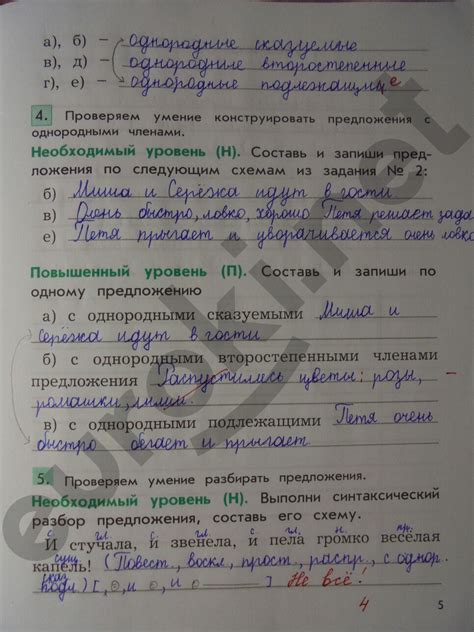 а), б) – однородные сказуемые
в), д) – однородные второстепенные
г), е) – однородные подлежащие
4. Проверяем умение конструировать предложения с
однородными членами.
Необходимый уровень (Н). Составь и запиши пред-
ложения по следующим схемам из задания № 2:
б) Миша и Серёжка идут в гости
в) Очень быстро, ловко, хорошо Петя решает зада
е) Петя прыгает и уворачивается очень ловко
Повышенный уровень (П). Составь и запиши по
одному предложению
а) с однородными сказуемыми Миша и
Серёжка идут в гости
б) с однородными второстепенными членами
предложения Распустились цветы: розы,
ромашки, лилии.
в) с однородными подлежащими Петя очень
быстро бегает и прыгает.
5. Проверяем умение разбирать предложения.
Необходимый уровень (Н). Выполни синтаксический
разбор предложения, составь его схему.
с. гл. с. гл. с. гл. н. пр.
И стучала, и звенела, и пела громко весёлая
сущ.
капель! (Повест., воскл., прост., распр., с однор.
сказ.
подл.) [ , и , и ] Не всё!
4
5
eureki.net